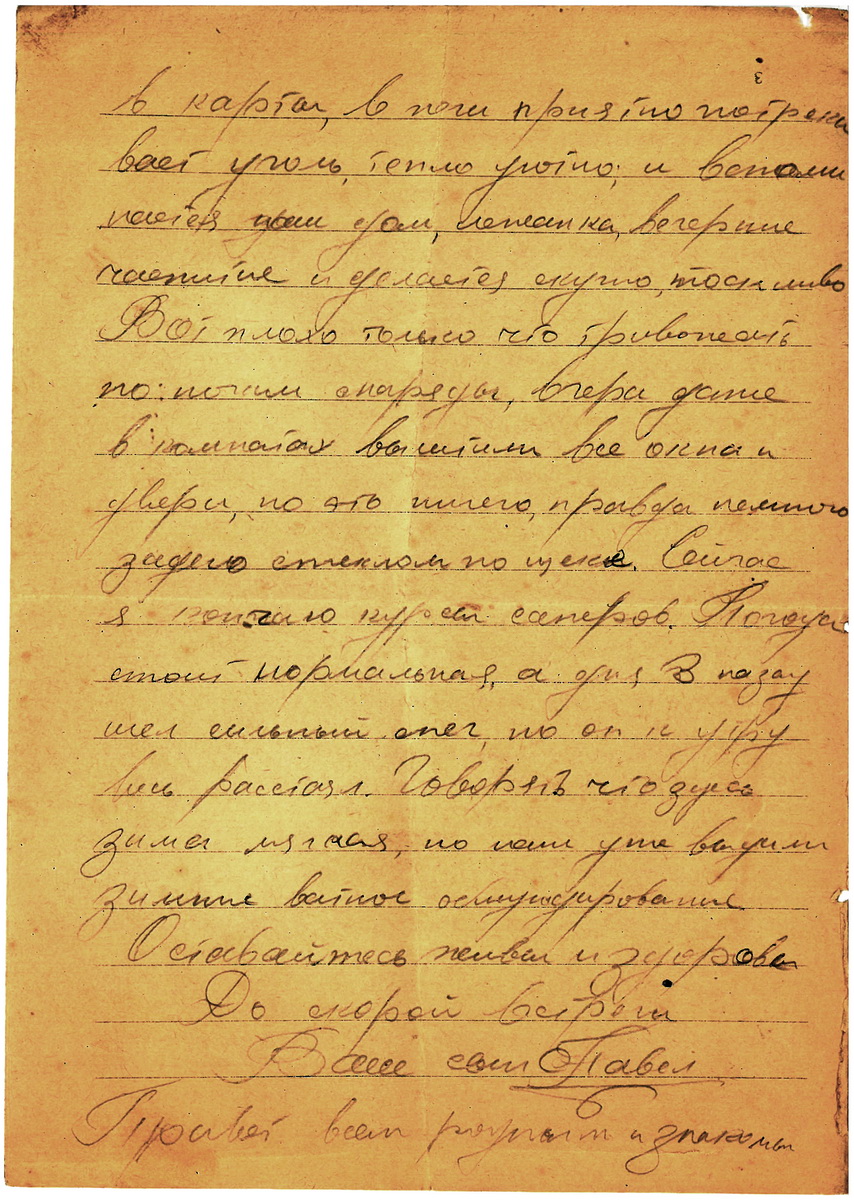 3
в карты, в печи приятно потрески
вает уголь, тепло уютно, и вспоми
нается наш дом, лежанка, вечерние
чаепитие и делается скучно, тоскливо
Вот плохо только что тривожать
по ночам снаряды, вчера даже
в комнатах вышибли все окна и
двери, но это ничего, правда немного
задело стеклом по щеке. Сейчас
я кончаю курсы саперов. Погода
стоит нормальная, а дня 3 назад
шел сильный снег, но он к утру
весь расстаял. Говорять что здесь
зима мягкая, но нам уже выдали
зимние ватное обмундирование
Оставайтесь живы и здоровы
До скорой встречи
Ваш сын Павел
Привет всем родным и знакомы